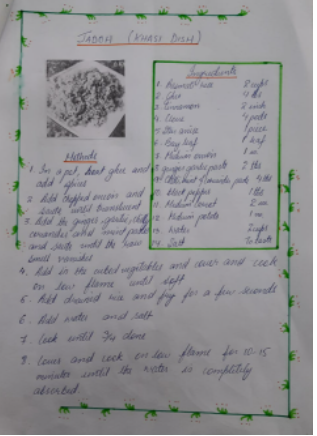 JADOH (KHASI DISH)
Ingredients
1. Basmati rice 2 cups
2. Ghee 4 tbs
3. Cinnamon 2 inch
4. Clove 4 pods
5. Star anise 1 piece
6. Bay leaf 1 leaf
7. Medium onion 1 no
8. ginger garlic paste 2 tbs
9. paste 4 tbs
10. black pepper 1 tbs
11. Medium carrot 2 no
12. Medium potato 1 no
13. Water 2 cups
14. Salt To taste
Methods
1. In a pot, heat ghee and
add spices
2. Add chopped onion and
saute until translucent
3. Add the ginger garlic, chilly
coriander mint paste
and saute until the raw
smell vanishes
4. Add in the cubed vegetables and cover and cook
on low flame until soft
5. Add drained rice and fry for a few seconds
6. Add water and salt
7. Cook until 3/4 done
8. Cover and cook on low flame for 10-15
minutes until the water is completely
absorbed.